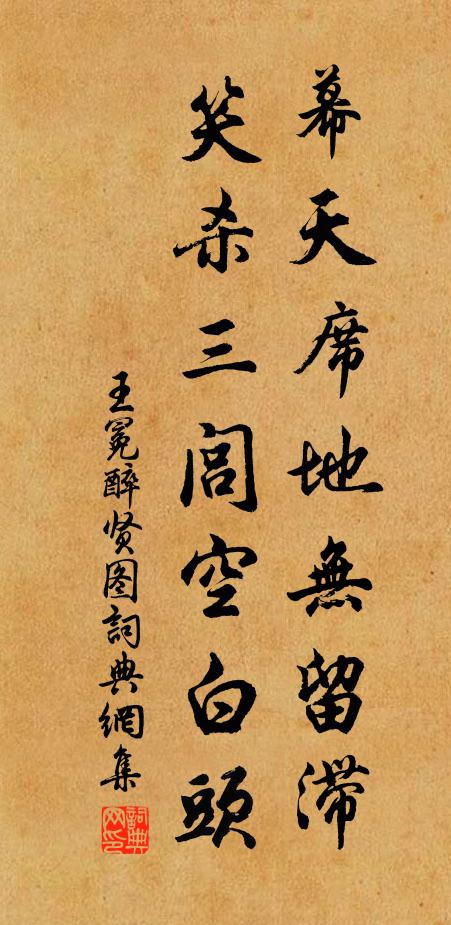 幕天席地無留滯
笑杀三閭空白頭
王冕醉贤图詞典網集
詞典网印